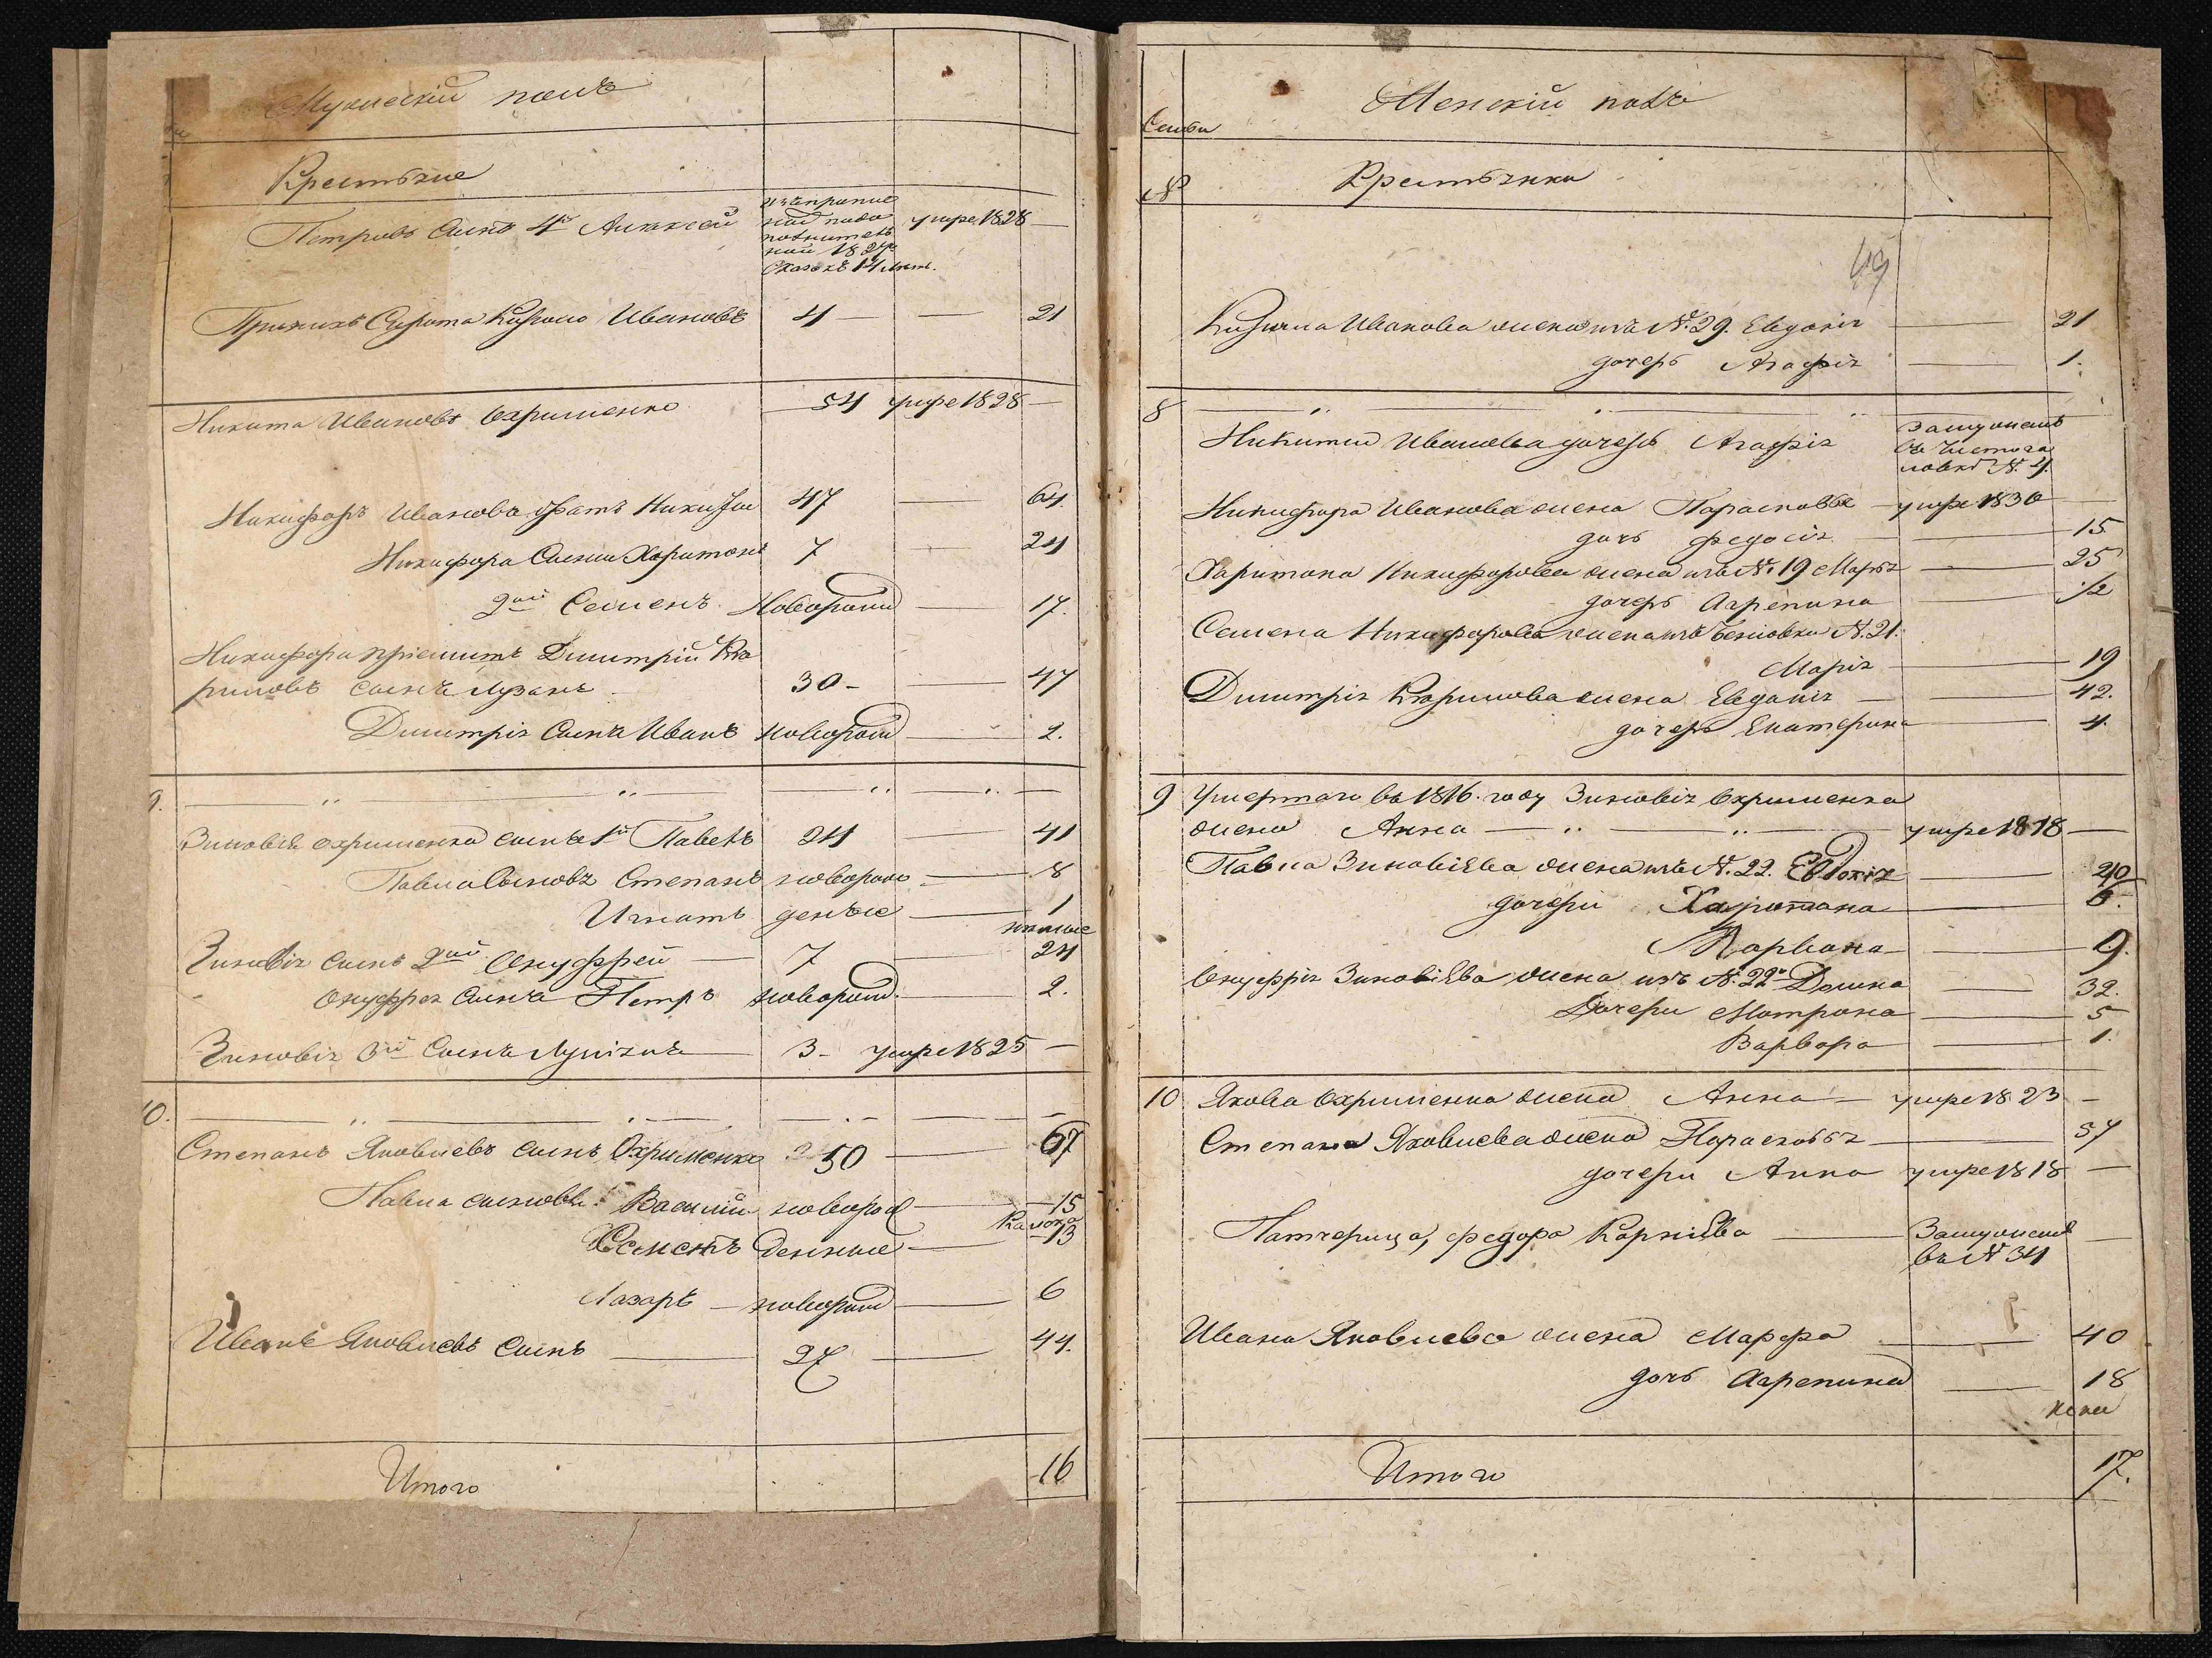 Мужескій полъ
Крестьяне
Петровъ Сынъ 4й Алексей
изъ припис
ной попо
полнитель
ной 1824
сказкѣ 14 лет.
умре 1828 —
Сирота Ивановъ 4 — — 21
Никита Ивановъ Охрименко 54 умре 1828 —
Никифоръ Ивановъ братъ Никиты 47 — 64
Никифора Сыны Харитонъ 7 — 24
2ой Семенъ Новорож — 17.
Никифора пріемышъ Дмитрій
сынъ 30 — — 47
Дмитрія Сынъ Иванъ новорож — 2.
9.
Зиновія Охрименка сынъ 1й Павелъ 24 — 41
Павла Сыновъя Степанъ новорож — 8
Игнатъ денные — 1
Зиновія сынъ 2ой Онуфрей — 7 — 24
Онуфрея Сынъ Петръ новорож. — 2.
Зиновія 3й Сынъ — 3 — умре 1825 —
10.
Степанъ Яковлевъ сынъ Охрименко 50 — 67
Павла сыновья Василій новорож — 15
Семенъ денные — 13
Лазаръ — новорож — 6
Иванъ Яковлевъ Сынъ — 27 — 44.
Итого 16
Женскій полъ
Семьи
Крестьянки
№
49
Ивановa жена изъ №. 29. Евдокія — 21
дочерь Агафія — 1.
8
Никиты Иванова дочерь Агафія
Замужемъ
въ
№. 4.
Никифора Иванова жена Парасковья — умре 1830 —
дочь Федосія — 15.
Харитона Никифорова жена изъ №. 19 Марья — 25
дочерь Агрепина — ½
Семена Никифорова жена изъ №. 21.
Марія — 19
Дмитрія жена Евдокія — 42.
дочерь Екатерина — 4.
9 Умершаго въ 1816. году Зиновія Охрименка
жена Анна — умре 1818 —
Павла Зиновіева жена изъ №. 22. Евдокія — 40
дочери Харитана — 6.
— 9.
Онуфрія Зиновіева жена изъ №. 22 Домна — 32.
Дочери Матрона — 5
Варвара — 1.
10 Якова Охрименка жена Анна — умре 1823 —
Степана Яковлева жена Парасковья — 57
дочери Анна умре 1818 —
Патчерица, Федора Карніева —
Замужемъ
въ № 34
—
Ивана Яковлева жена Марфа — 40
дочь Агрепина — 18
Итого 17.